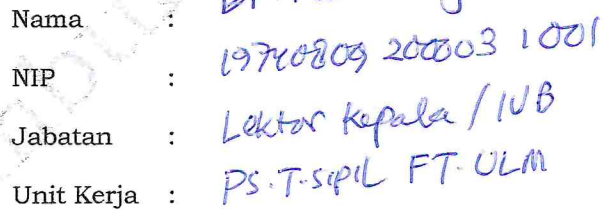 Nama :
NIP : 19740809 200003 1 001
Jabatan : Lektor Kepala / IVB
Unit Kerja : PS. T. Sipil FT. ULM